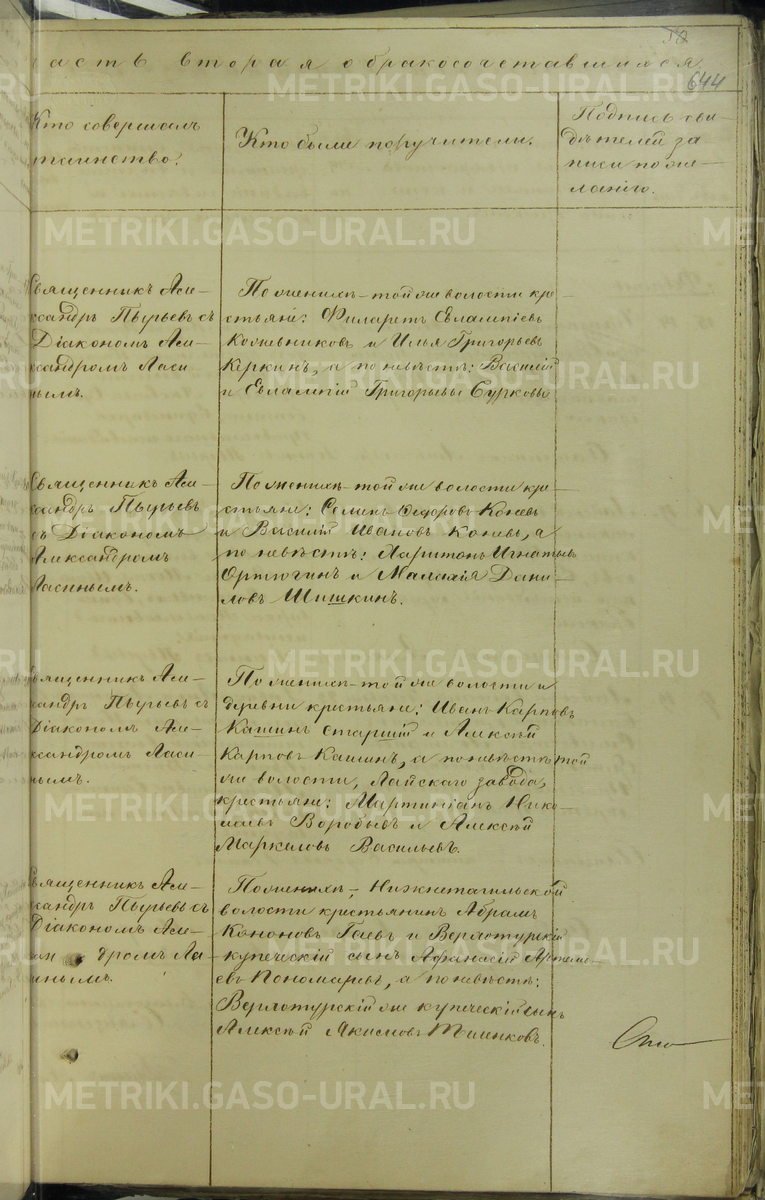 50
644
асть вторая о бракосочетавшихся
Кто совершалъ
таинство.
Кто были поручители.
Подпись сви-
дѣтелей за
писи по же-
ланію.
Священникъ Але-
ксандръ Пырьевъ съ
Діакономъ Але-
ксандромъ
нымъ.
По женихѣ – той же волости кре-
стьяне: Филаретъ Евлампіевъ
Кожевниковъ и Илья Григорьевъ
Кёркинъ, а по невѣстѣ: Василій
и Евлампій Григорьевы Сурковы
Священникъ Але-
ксандръ Пырьевъ
съ Діакономъ
Александромъ
По женихѣ – той же волости кре-
стьяне: Семенъ Ѳедоровъ Коневъ
и Василій Ивановъ Коневъ, а
по невѣстѣ: Харитонъ Игнатьевъ
Ортюгинъ и Малахія Дани-
ловъ Шишкинъ.
Священникъ Але-
ксандръ Пырьевъ съ
Діакономъ Але-
ксандромъ
нымъ.
По женихѣ – той же волости и
деревни крестьяне: Иванъ Карповъ
Кашинъ старшій и Алексѣй
Карповъ Кашинъ, а по невѣстѣ той
же волости, Лайскаго завода,
крестьяне: Мартиніанъ Нико-
лаевъ Воробьевъ и Алексѣй
Маркеловъ Васильевъ.
Священникъ Але-
ксандръ Пырьевъ съ
Діакономъ Але-
дромъ
нымъ.
По женихѣ, – Нижнетагильской
волости крестьянинъ Абрамъ
Кононовъ Гаевъ и Верхотурскій
купеческій сынъ Афанасій Артемь-
евъ Пономаревъ, а по невѣстѣ:
Верхотурскій же купеческій сынъ
Алексѣй Якимовъ
METRIKI.GASO-URAL.RU